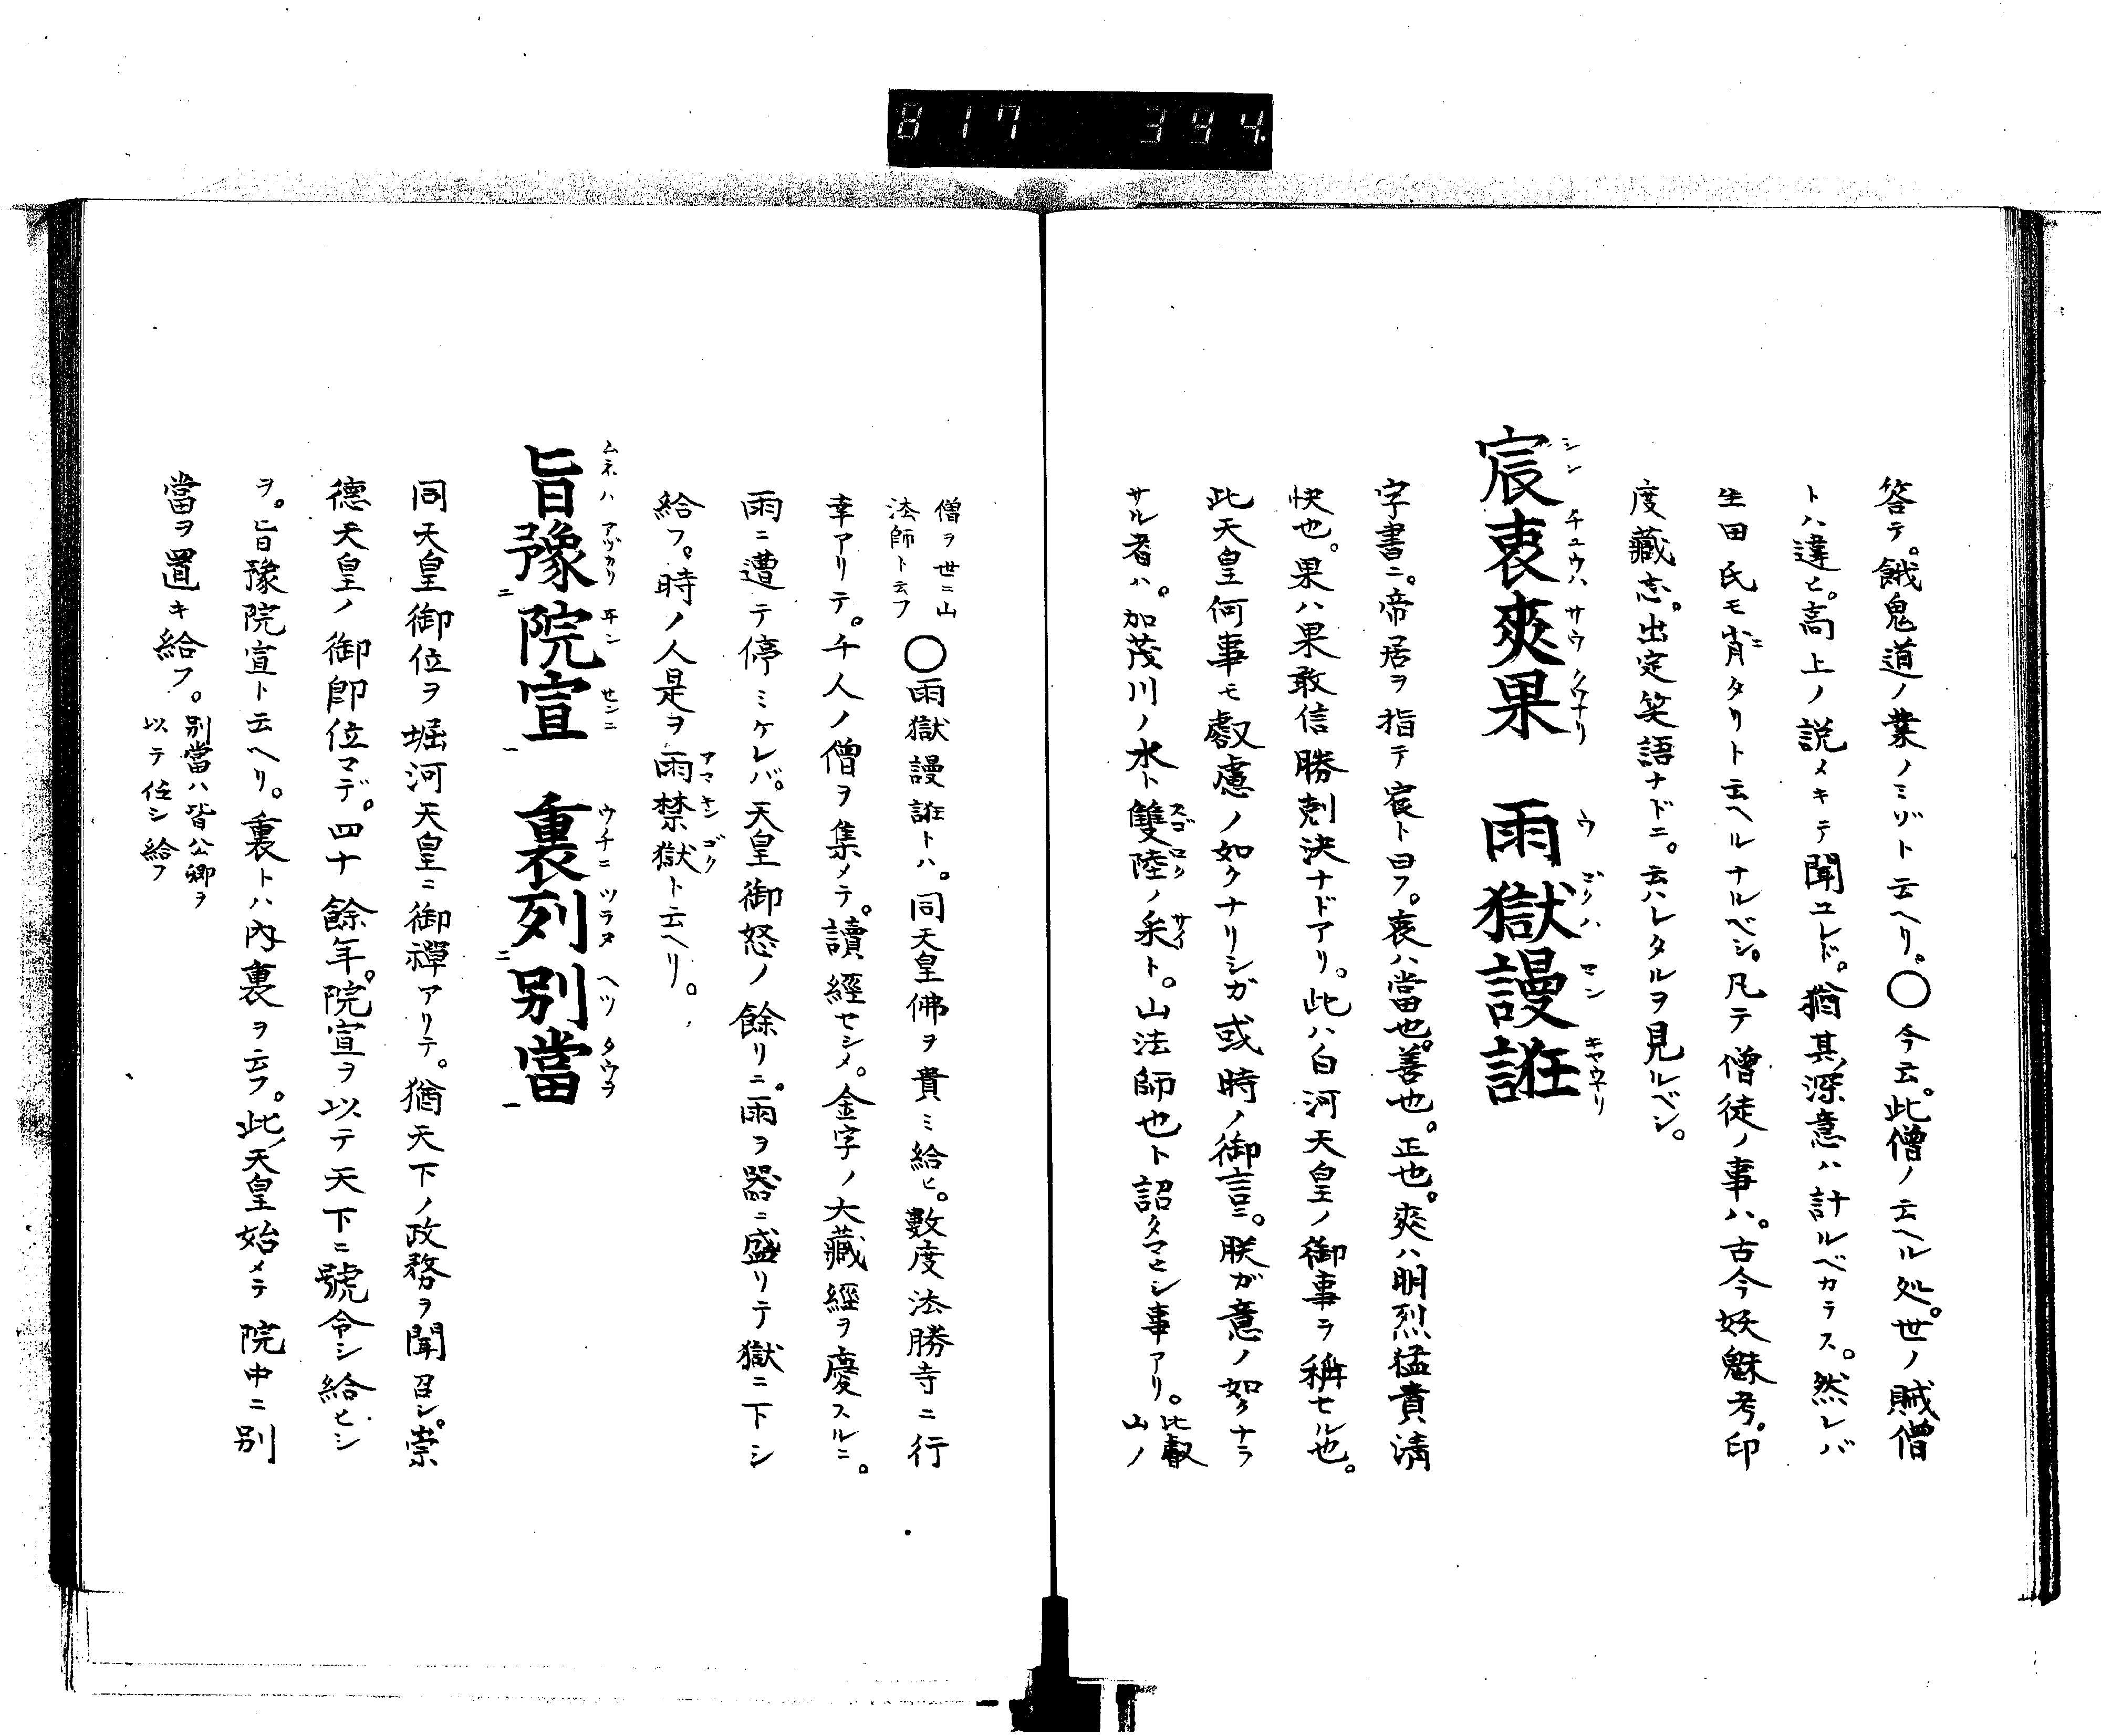 817 394
答テ。餓鬼道ノ業ノミゾト云ヘリ。○今云。此僧ノ云ヘル処。世ノ賊僧
トハ違ヒ。高上ノ説メキテ聞ユレド。猶其深意ハ計ルベカラス。然レバ
生田氏モ肯ニタリト云ヘルナルベシ。凡テ僧徒ノ事ハ。古今妖魅考。印
度藏志。出定笑語ナドニ。云ハレタルヲ見ルベシ。
宸衷爽果 雨獄謾誑
シン チユウハ サウ クワナリ ウ ゴクハ マン キヤウナリ
字書ニ。帝居ヲ指テ宸ト曰フ。衷ハ當也。善也。正也。爽ハ明烈猛貴清
快也。果ハ果敢信勝剋決ナドアリ。此ハ白河天皇ノ御事ヲ稱セル也。
此天皇何事モ叡慮ノ如クナリシガ或時ノ御言ニ。朕ガ意ノ如クナラ
サル者ハ。加茂川ノ水ト雙陸ノ采ト。山法師也ト詔タマヒシ事アリ。比叡
スゴロク サイ
山ノ
僧ヲ世ニ山
法師ト云フ
○雨獄謾誑トハ。同天皇佛ヲ貴ミ給ヒ。數度法勝寺ニ行
幸アリテ。千人ノ僧ヲ集メテ。讀經セシメ。金字ノ大藏經ヲ慶スルニ。
雨ニ遭テ停ミケレバ。天皇御怒ノ餘リニ。雨ヲ器ニ盛リテ獄ニ下シ
給フ。時ノ人是ヲ雨禁獄ト云ヘリ。
アマキンゴク
旨豫院宣 裏列別當
ムネハ アヅカリ ヰン センニ ウチニ ツラヌ ヘツ タウヲ
ニ 一 ニ 一
同天皇御位ヲ堀河天皇ニ御禪アリテ。猶天下ノ政務ヲ聞召シ。崇
德天皇ノ御卽位マデ。四十餘年。院宣ヲ以テ天下ニ號令シ給ヒシ
ヲ。旨豫院宣ト云ヘリ。裏トハ內裏ヲ云フ。此天皇始メテ院中ニ別
當ヲ置キ給フ。
別當ハ皆公卿ヲ
以テ任シ給フ